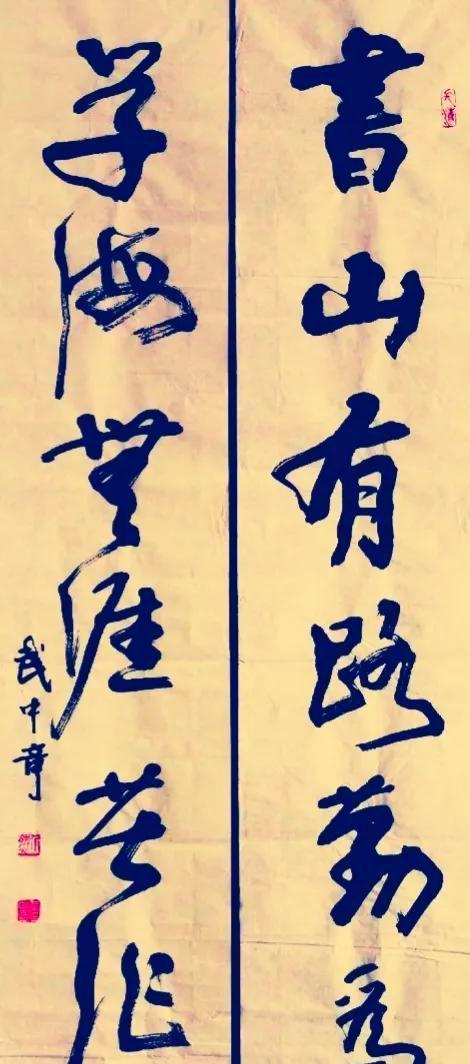 書山有路勤為
学海無涯苦作
武中奇